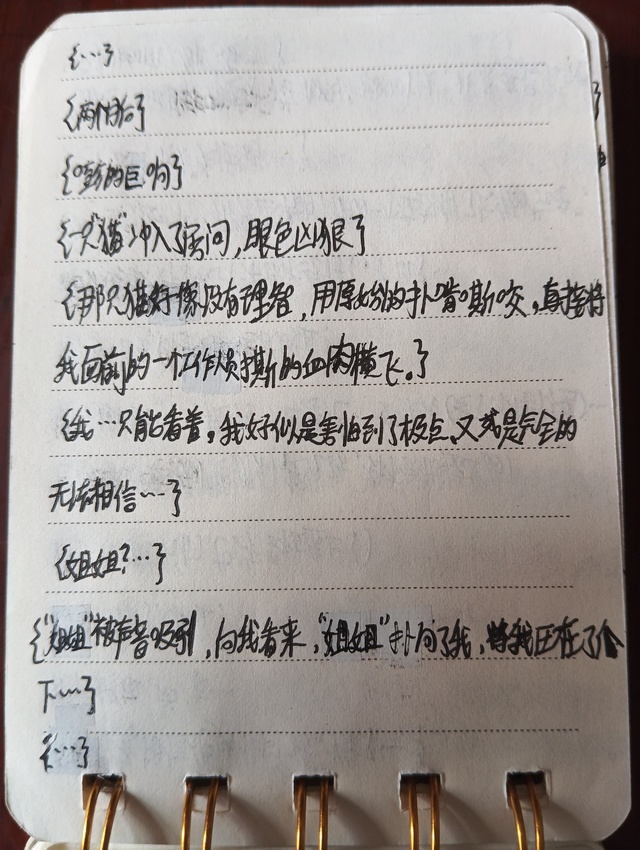 {…}
{两个月后}
{嘭的巨响}
{一只"猫"冲入了房间,眼色凶狠}
{那只猫好像没有理智,用原始的扑啃嘶咬,直接将
我面前的一个工作人员撕的血肉横飞。}
{我…只能看着。我好似是害怕到了极点、又或是完全的
无法相信……}
{姐姐?…}
{"姐姐"被声音吸引,向我看来,"姐姐"扑向了我,将我压在了
下……}
{…}